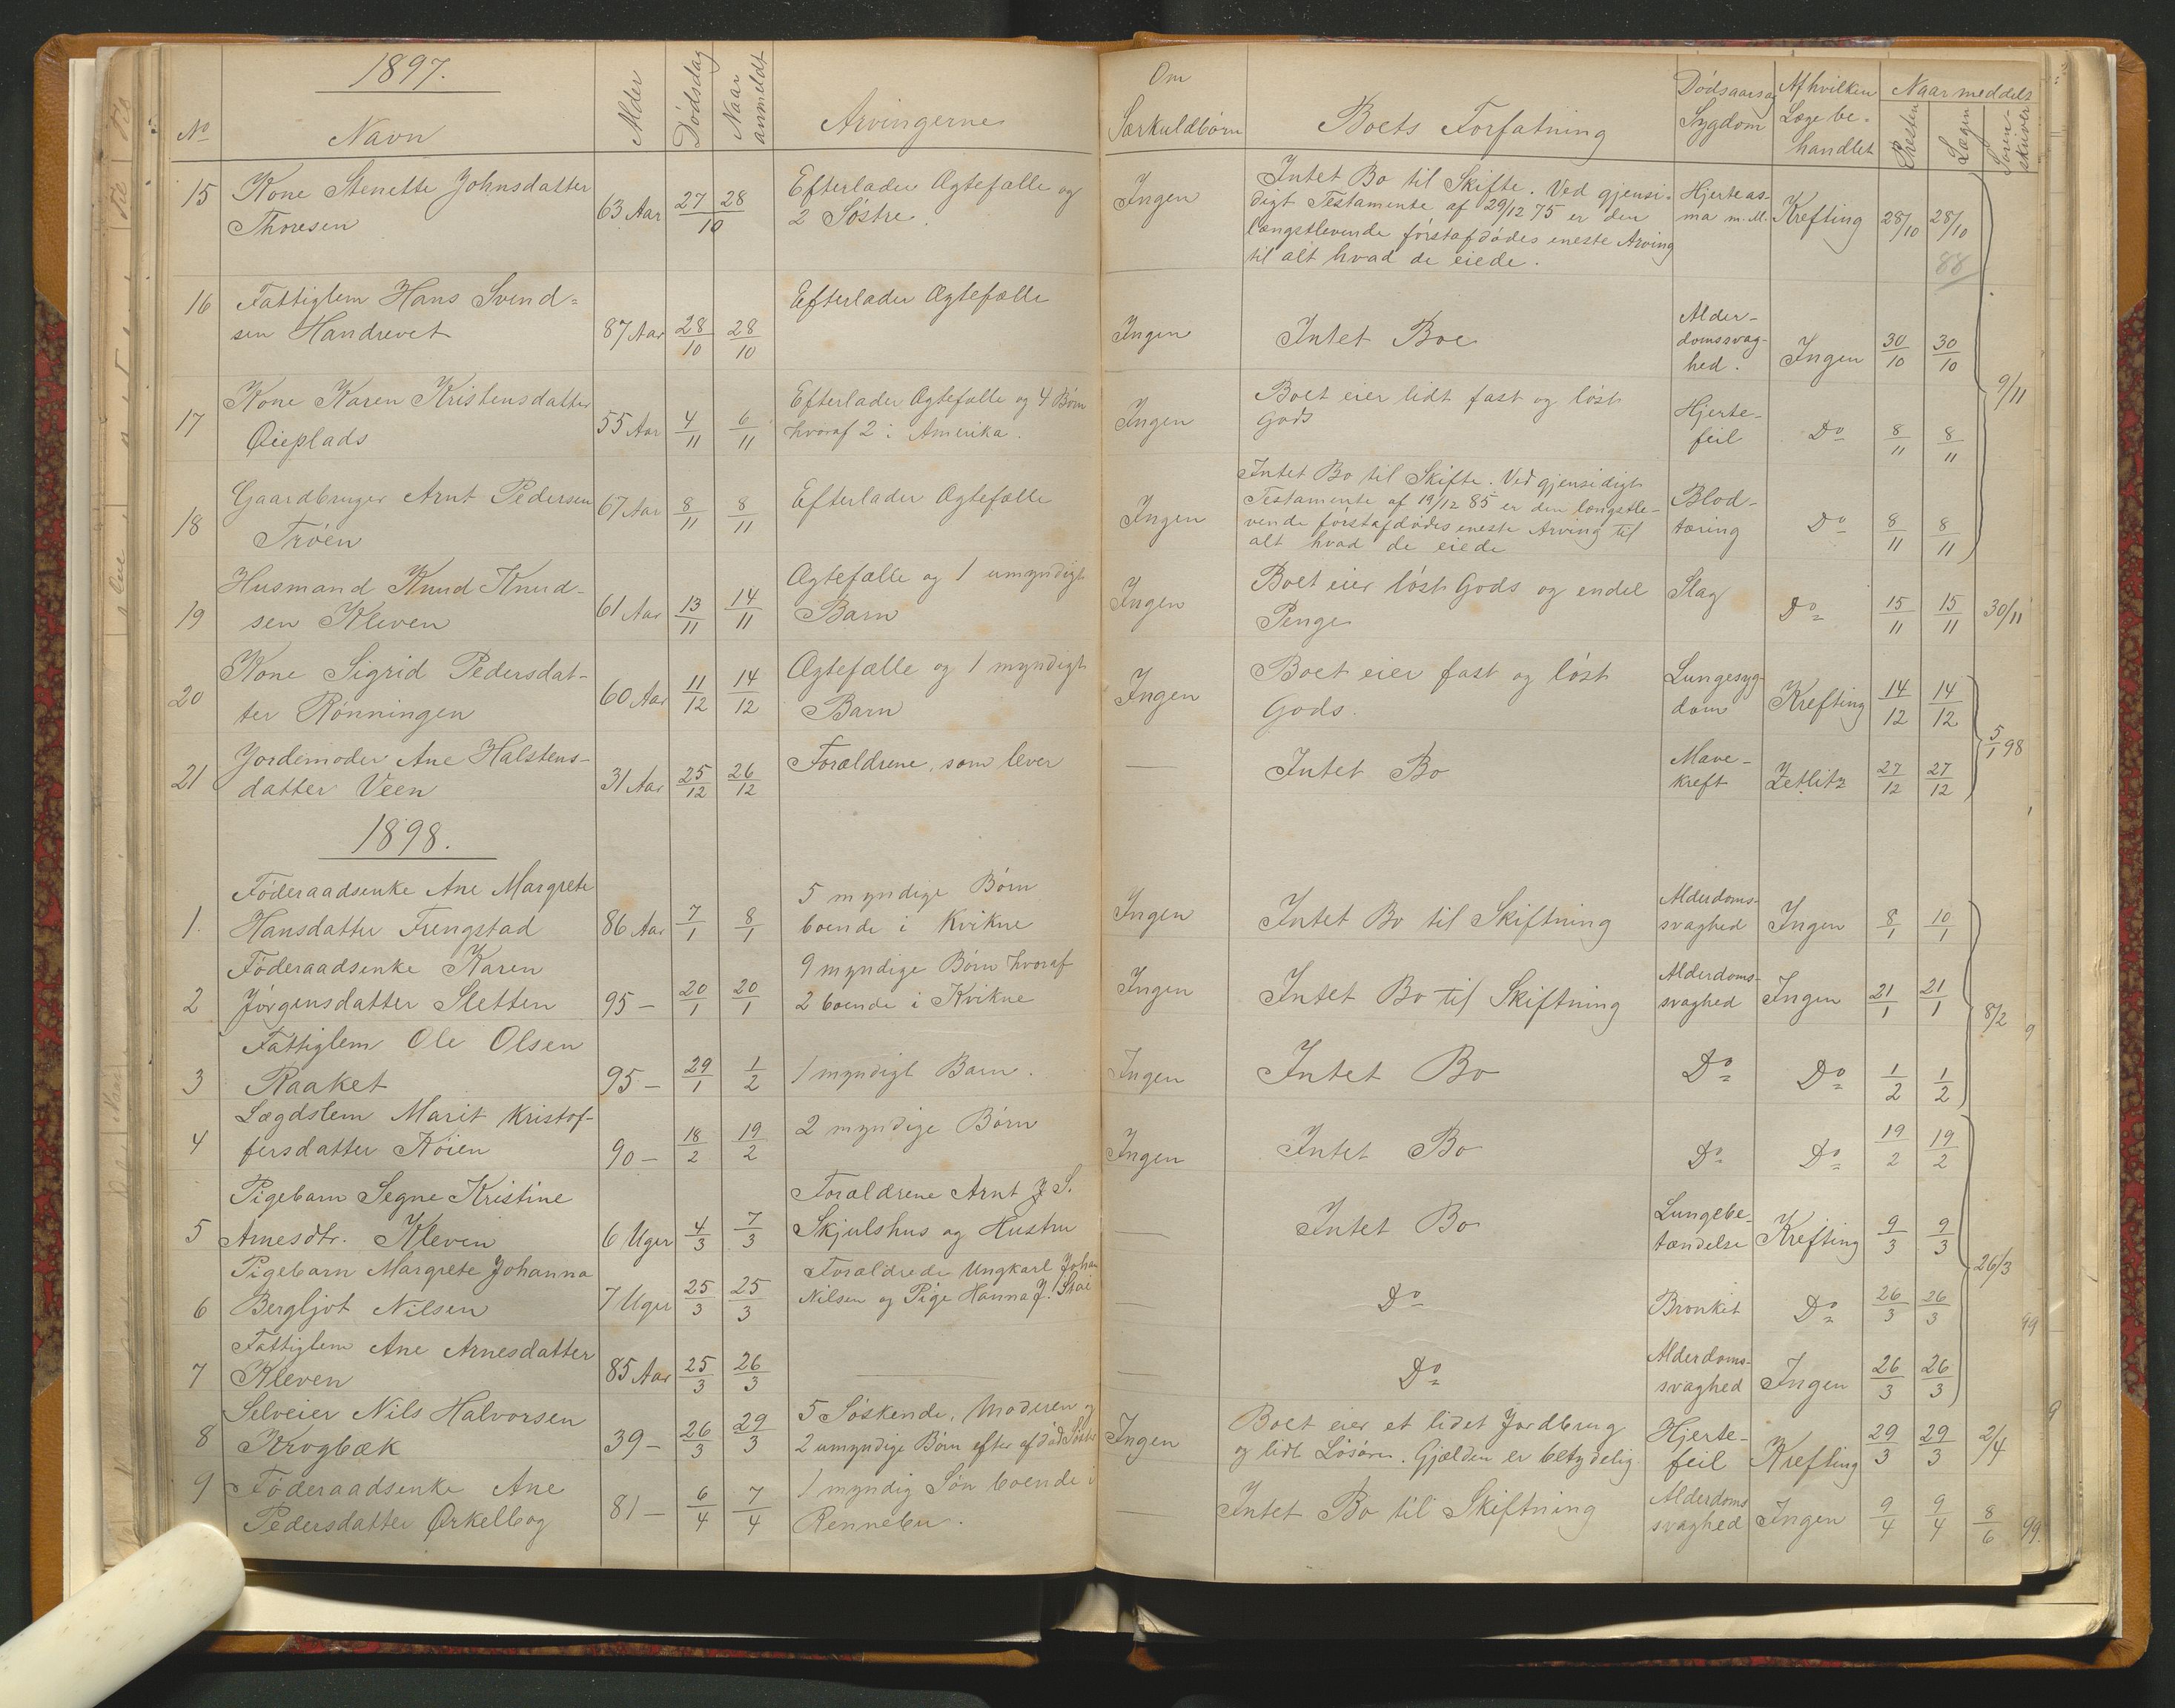 1897.
No
Navn
Alder
Dödsdag
Naar anmeldt
Arvingerne
Om Særkuldbörn
Boets Forfatning
Dödsaarsag Sygdom
Af hvilken Læge be-handlet
Naar meddelt
Presten
Lægen
Soren-skriver
15 Kone Stenette Johnsdatter 63 Aar 27/10 28/10 Efterlader Ægtefælle og Ingen Intet Bo til Skifte. Ved gjensi- Hjerteas- Krefting 28/10 28/10
Thoresen 2 Söstre digt Testamente af 29/12 75 er den ma m. M.
længstlevende förstafdödes eneste Arving
til alt hvad de eiede.
88
16 Fattiglem Hans Svend= 87 Aar 28/10 28/10 Efterlader Ægtefælle Ingen Intet Boe Alder- Ingen 30/10 30/10
sen Handrevet domssvag-
hed.
17 Kone Karen Kristensdatter 55 Aar 4/11 6/11 Efterlader Ægtefælle og 4 Börn Ingen Boet eier lidt fast og löst Hjerte- Do 8/11 8/11 9/11
Øieplads hvoraf 2 i Amerika. Gods feil
18 Gaardbruger Arnt Pedersen 67 Aar 8/11 8/11 Efterlader Ægtefælle Ingen Intet Bo til Skifte. Ved gjensidigt Blod- Do 8/11 8/11
Tröen Testamente af 19/12 85 er den længstle- tæring
vende förstafdödes eneste Arving til
alt hvad de eiede
19 Husmand Knud Knud- 61 Aar 13/11 14/11 Ægtefælle og 1 umyndigt Ingen Boet eier löst Gods og endel Slag Do 15/11 15/11 30/11
sen Kleven Barn Penge
20 Kone Sigrid Pedersdat- 60 Aar 11/12 14/12 Ægtefælle og 1 myndigt Ingen Boet eier fast og löst Lungesyg- Krefting 14/12 14/12
ter Rönningen Barn Gods. dom
5/1 98
21 Jordemoder Ane Halstens- 31 Aar 25/12 26/12 Forældrene, som lever — Intet Bo Mave- Zetlitz 27/12 27/12
datter Veen kreft
1898.
1. Föderaadsenke Ane Margrete 86 Aar 7/1 8/1 5 myndige Börn Ingen Intet Bo til Skiftning Alderdoms- Ingen 8/1 10/1
Hansdatter Frengstad boende i Kvikne svaghed
2 Föderaadsenke Karen 95 — 20/1 20/1 9 myndige Börn hvoraf Ingen Intet Bo til Skiftning Alderdoms- Ingen 21/1 21/1 8/2
Jörgensdatter Sletten 2 boende i Kvikne svaghed
3 Fattiglem Ole Olsen 95 — 29/1 1/2 1 myndigt Barn. Ingen Intet Bo Do Do 1/2 1/2
Raaket
4 Lægdslem Marit Kristof- 90 — 18/2 19/2 2 myndige Börn Ingen Intet Bo Do Do 19/2 19/2
fersdatter Köien
5 Pigebarn Segne Kristine 6 Uger 4/3 7/3 Forældrene Arnt J S. — Intet Bo Lungebe- Krefting 9/3 9/3
Arnesdtr. Kleven Skjulshus og Hustru tændelse
26/3
6 Pigebarn Margrete Johanna 7 Uger 25/3 25/3 Forældrede Ungkarl Johan — Do Bronkit Do 26/3 26/3
Bergljot Nilsen Nilsen og Pige Hanna J.
7 Fattiglem Ane Arnesdatter 85 Aar 25/3 26/3 — — Do Alderdoms- Ingen 26/3 26/3
Kleven svaghed
8 Selveier Nils Halvorsen 39 — 26/3 29/3 5 Söskende, Moderen og Ingen Boet eier et lidet Jordbrug Hjerte- Krefting 29/3 29/3 2/4
Krogbæk 2 umyndige Börn efter afdöd Söster og lidt Lösöre. Gjælden er betydelig. feil
9 Föderaadsenke Ane 81 — 6/4 7/4 1 myndig Sön boende i — Intet Bo til Skiftning Alderdoms Ingen 9/4 9/4 8/6
Pedersdatter Ørkelbog Rennebu. svaghed